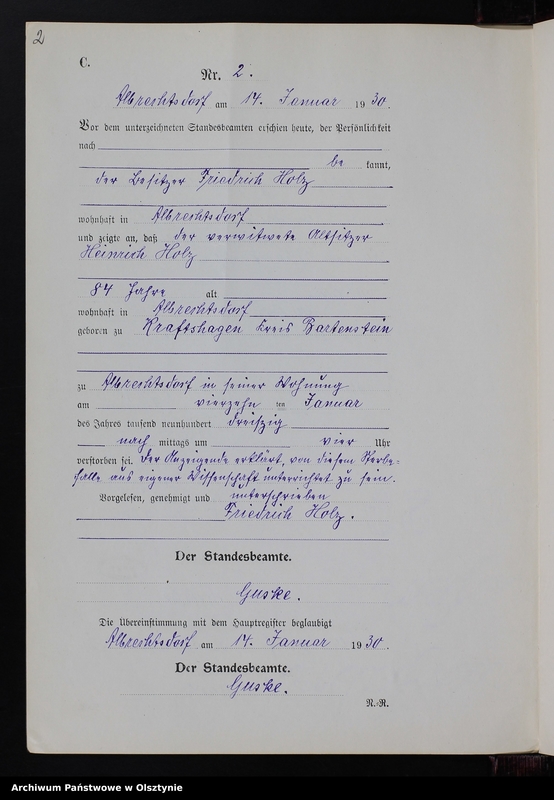 2
C.
Nr. 2.
Albrechtsdorf am 14. Januar 1930.
Vor dem unterzeichneten Standesbeamten erschien heute, der Persönlichkeit
nach
be kannt,
der Besitzer Friedrich Holz
wohnhaft in Albrechtsdorf
und zeigte an, daß der verwitwete Altsitzer
Heinrich Holz
84 Jahre alt
wohnhaft in Albrechtsdorf
geboren zu Kraftshagen Kreis Bartenstein
zu Albrechtsdorf in seiner Wohnung
am vierzehn ten Januar
des Jahres tausend neunhundert dreiszig
nach mittags um vier Uhr
verstorben sei. Der Anzeigende erklärt, von diesem Sterbe=
falle aus eigener Wissenschaft unterrichtet zu sein.
Vorgelesen, genehmigt und unterschrieben
Friedrich Holz.
Der Standesbeamte.
Guske.
Die Übereinstimmung mit dem Hauptregister beglaubigt
Albrechtsdorf am 14. Januar 1930.
Der Standesbeamte.
Guske.
N.-R.
Archiwum Państwowe w Olsztynie